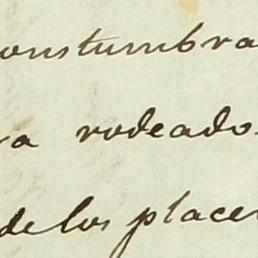 onstumbra
ra rodeado
de los placer